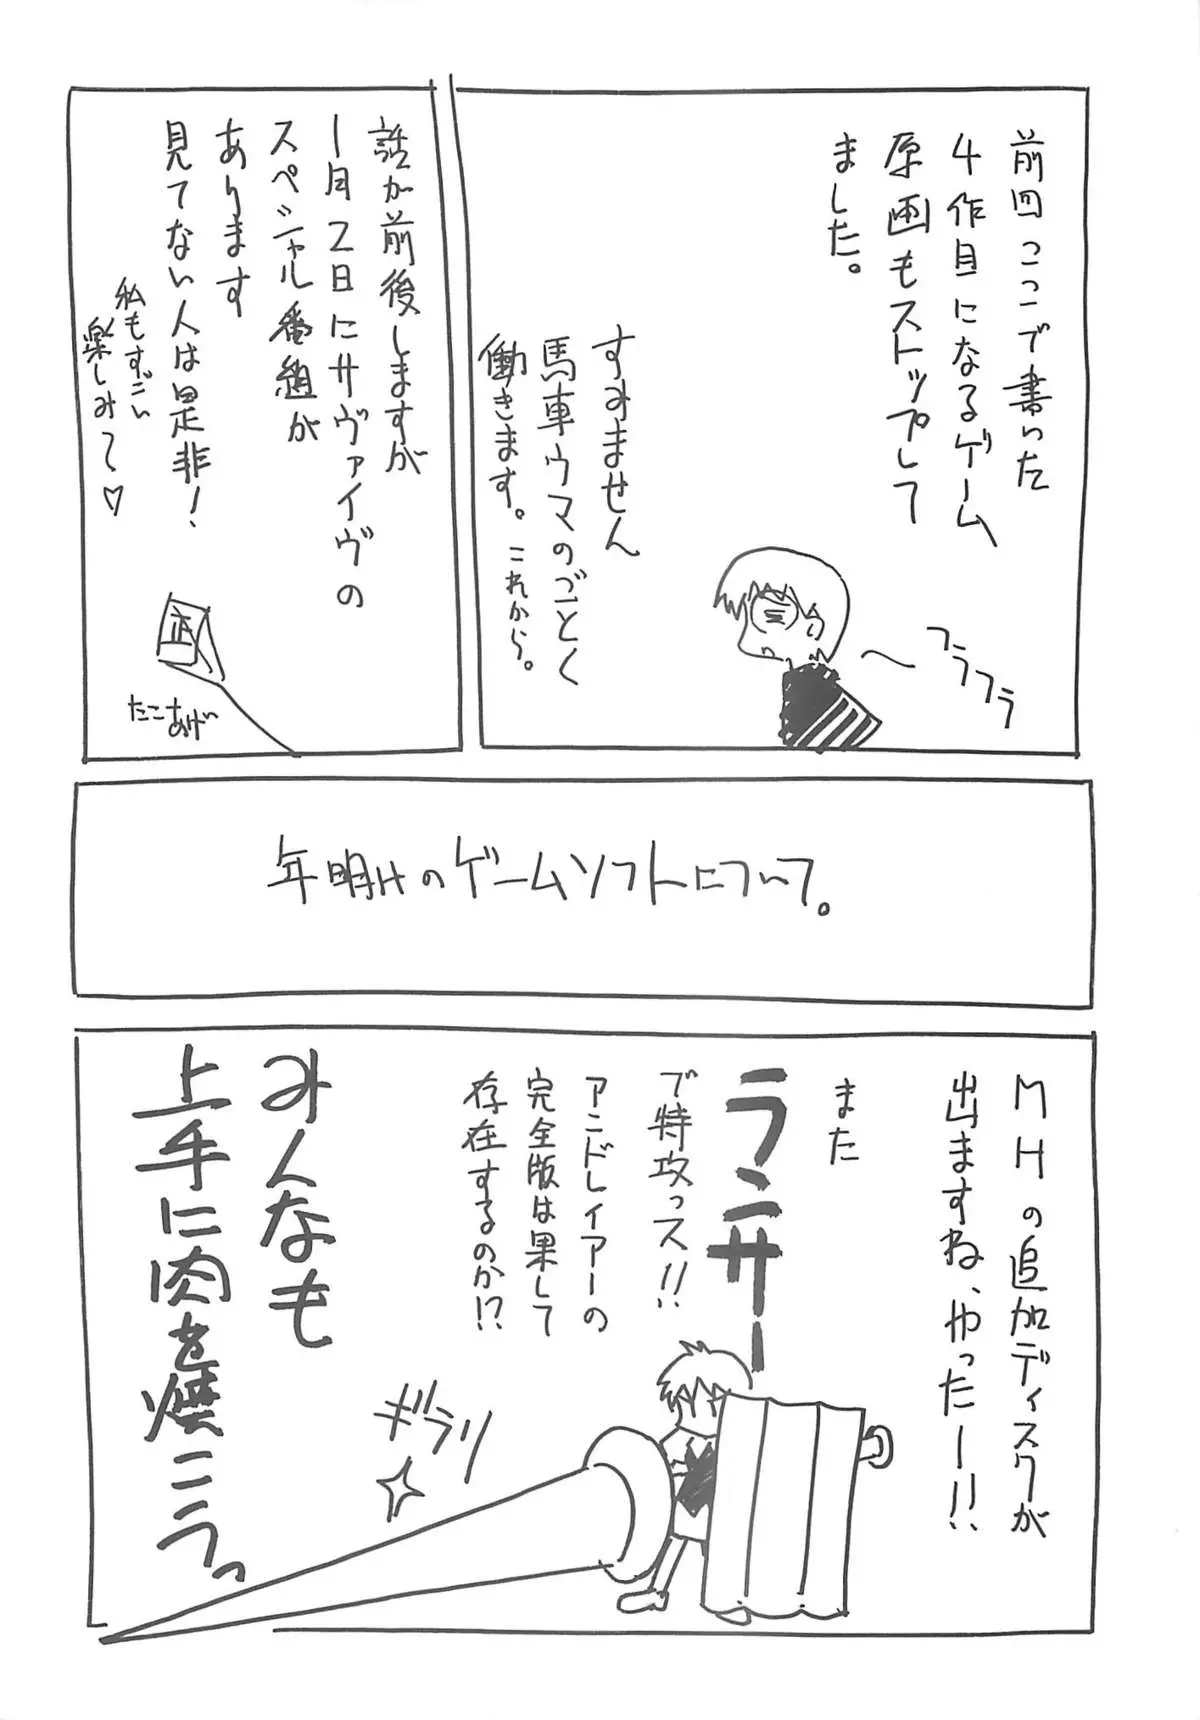 前回ここで書いた
4作目になるゲーム
原画もストップして
ました。
すみません
馬車ウマのごとく
働きます。これから。
フラフラ
話が前後しますが
1月2日にサヴァイヴの
スペシャル番組が
あります
見てない人は是非!
私もすごい
楽しみ〜♡
正
たこあげ
年明けのゲームソフトについて。
MHの追加ディスクが
出ますね、やったー!!
また
ランサー
で特攻っス!!
アンドレイアーの
完全版は果して
存在するのか!?
ギラリ
みんなも
上手に肉を燻こうっ